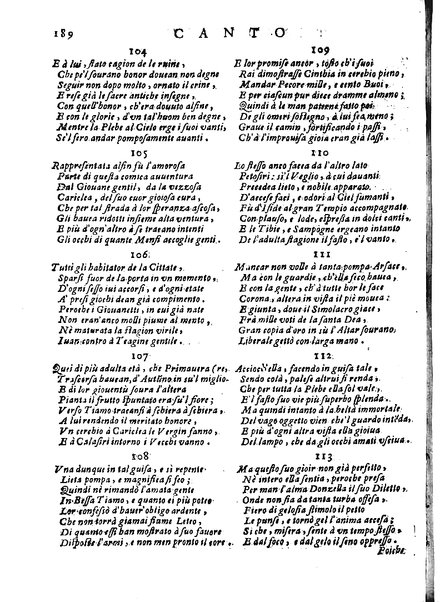 189
CANTO
104
E à lui, stato cagion de le ruine,
Che pe'l sourano honor douean non degne
Seguir non dopo molto, ornato il crine,
E rese già le sacre antiche insegne,
Con quell'honor, ch'era douuto alfine,
E con le glorie, d'vn tal huom ben degne,
Mentre la Plebe al Cielo erge i suoi vanti,
Se'l fero andar pomposamente auanti.
105
Rappresentata alfin fu l'amorosa
Parte di questa comica auuentura
Dal Giouane gentil, da la vezzosa
Cariclea, del suo cuor gioiosa cura,
Che per tal strada à lor speranza ascosa
Gli hauca ridotti insieme alta ventura,
E più d'ogn'altro à se traeano intenti
Gli occhi di quante Mensi accoglie genti.
106
Tutti gli habitator de la Cittate,
Sparsi fuor de la porta in vn momento,
D'ogni sesso iui accorsi, e d'ogni etate
A' presi giochi dean già compimento.
Peroche i Giouanetti, in cui grate
Non eran'anco molli piume al mento,
Nè maturata la stagion virile,
Iuan contro à Teagine gentile.
107
Quei di più adulta età, che Primauera (re,
Trascorsa haueano, d'Autũno in su'l miglio-
E di lor giouentù soura l'altera
Pianta il frutto spuntato era su'l fiore;
Verso Tiamo traeansi à schiera à schiera,
A lui rendendo il meritato honore,
Vn cerchio à Cariclea le Vergin fanno,
E à Calasiri intorno i Vecchi vanno.
108
Vna dunque in tal guisa, e sì repente
Lieta pompa, e magnifica si feo;
Quindi nè rimandò l'amata gente
In Bessa Tiamo, e quanto ei più poteo
Lor confessò d'hauer'obligo ardente,
Che non torrà giamai fiume Leteo,
Di quanto essi han mostrato à suo fauore
Disposte l'armi, e non men pronto il core.
109
E lor promise ancor, tosto ch'i suoi
Rai dimostrasse Cinthia in cerchio pieno,
Mandar Pecore mille, e cento Buoi,
E per ciascun pur diece dramme almeno;
Quindi à le man paterne fatto poi
De gli omeri sostegno, à lui fea, meno
Graue il camin, fortificando i passi,
Ch'à l'improuisa gioia eran già lassi.
110
Lo stesso anco facea da l'altro lato
Petosiri: sì il Veglio, à cui dauanti
Precedea lieto, e nobile apparato.
D'accese faci, e odori al Ciel fumanti,
Fù d'Iside al gran Tempio accompagnato
Con plauso, e lode, espressa in dolci canti.
E le Tibie, e Sampogne ergeano intanto
De l'adulta stagione il fasto, e'l vanto.
111
Mancar non volle à tanta pompa Arsace,
Ma con le guardie, ch'ella hauea, si mosse,
E con la gente, ch'à tutte hor le face
Corona, altera in vista il piè mouea:
E giunta, doue il Simolacro giace
Frà mille voti de la santa Dea,
Gran copia d'oro in sù l'Altar sourano,
Liberale gettò con larga mano.
112
Acciocella, facendo in guisa tale,
Sendo colà, palese altrui si renda,
Che per tutta la Plebe ella sol vale.
E'l fasto suo vie più superbo splenda.
Ma quindi intanto à la beltà immortale
Del vago oggetto vien che'l guardo intẽda,
E più d'ogni altra vista ella gioiua
Del lampo, che da gli occhi amati vsciua.
113
Ma questo suo gioir non già perfetto,
Nè intero ella sentia, perche presa
Per man l'alma Donzella il suo Diletto,
Onde non sia da tanta turba offesa,
Fiero di gelosia stimolo il petto
Le punse, e tornò gel l'anima accesa;
Sì che, misera, sente à vn tempo stesso
E dal foco, e dal gelo il seno oppresso.
Poiche